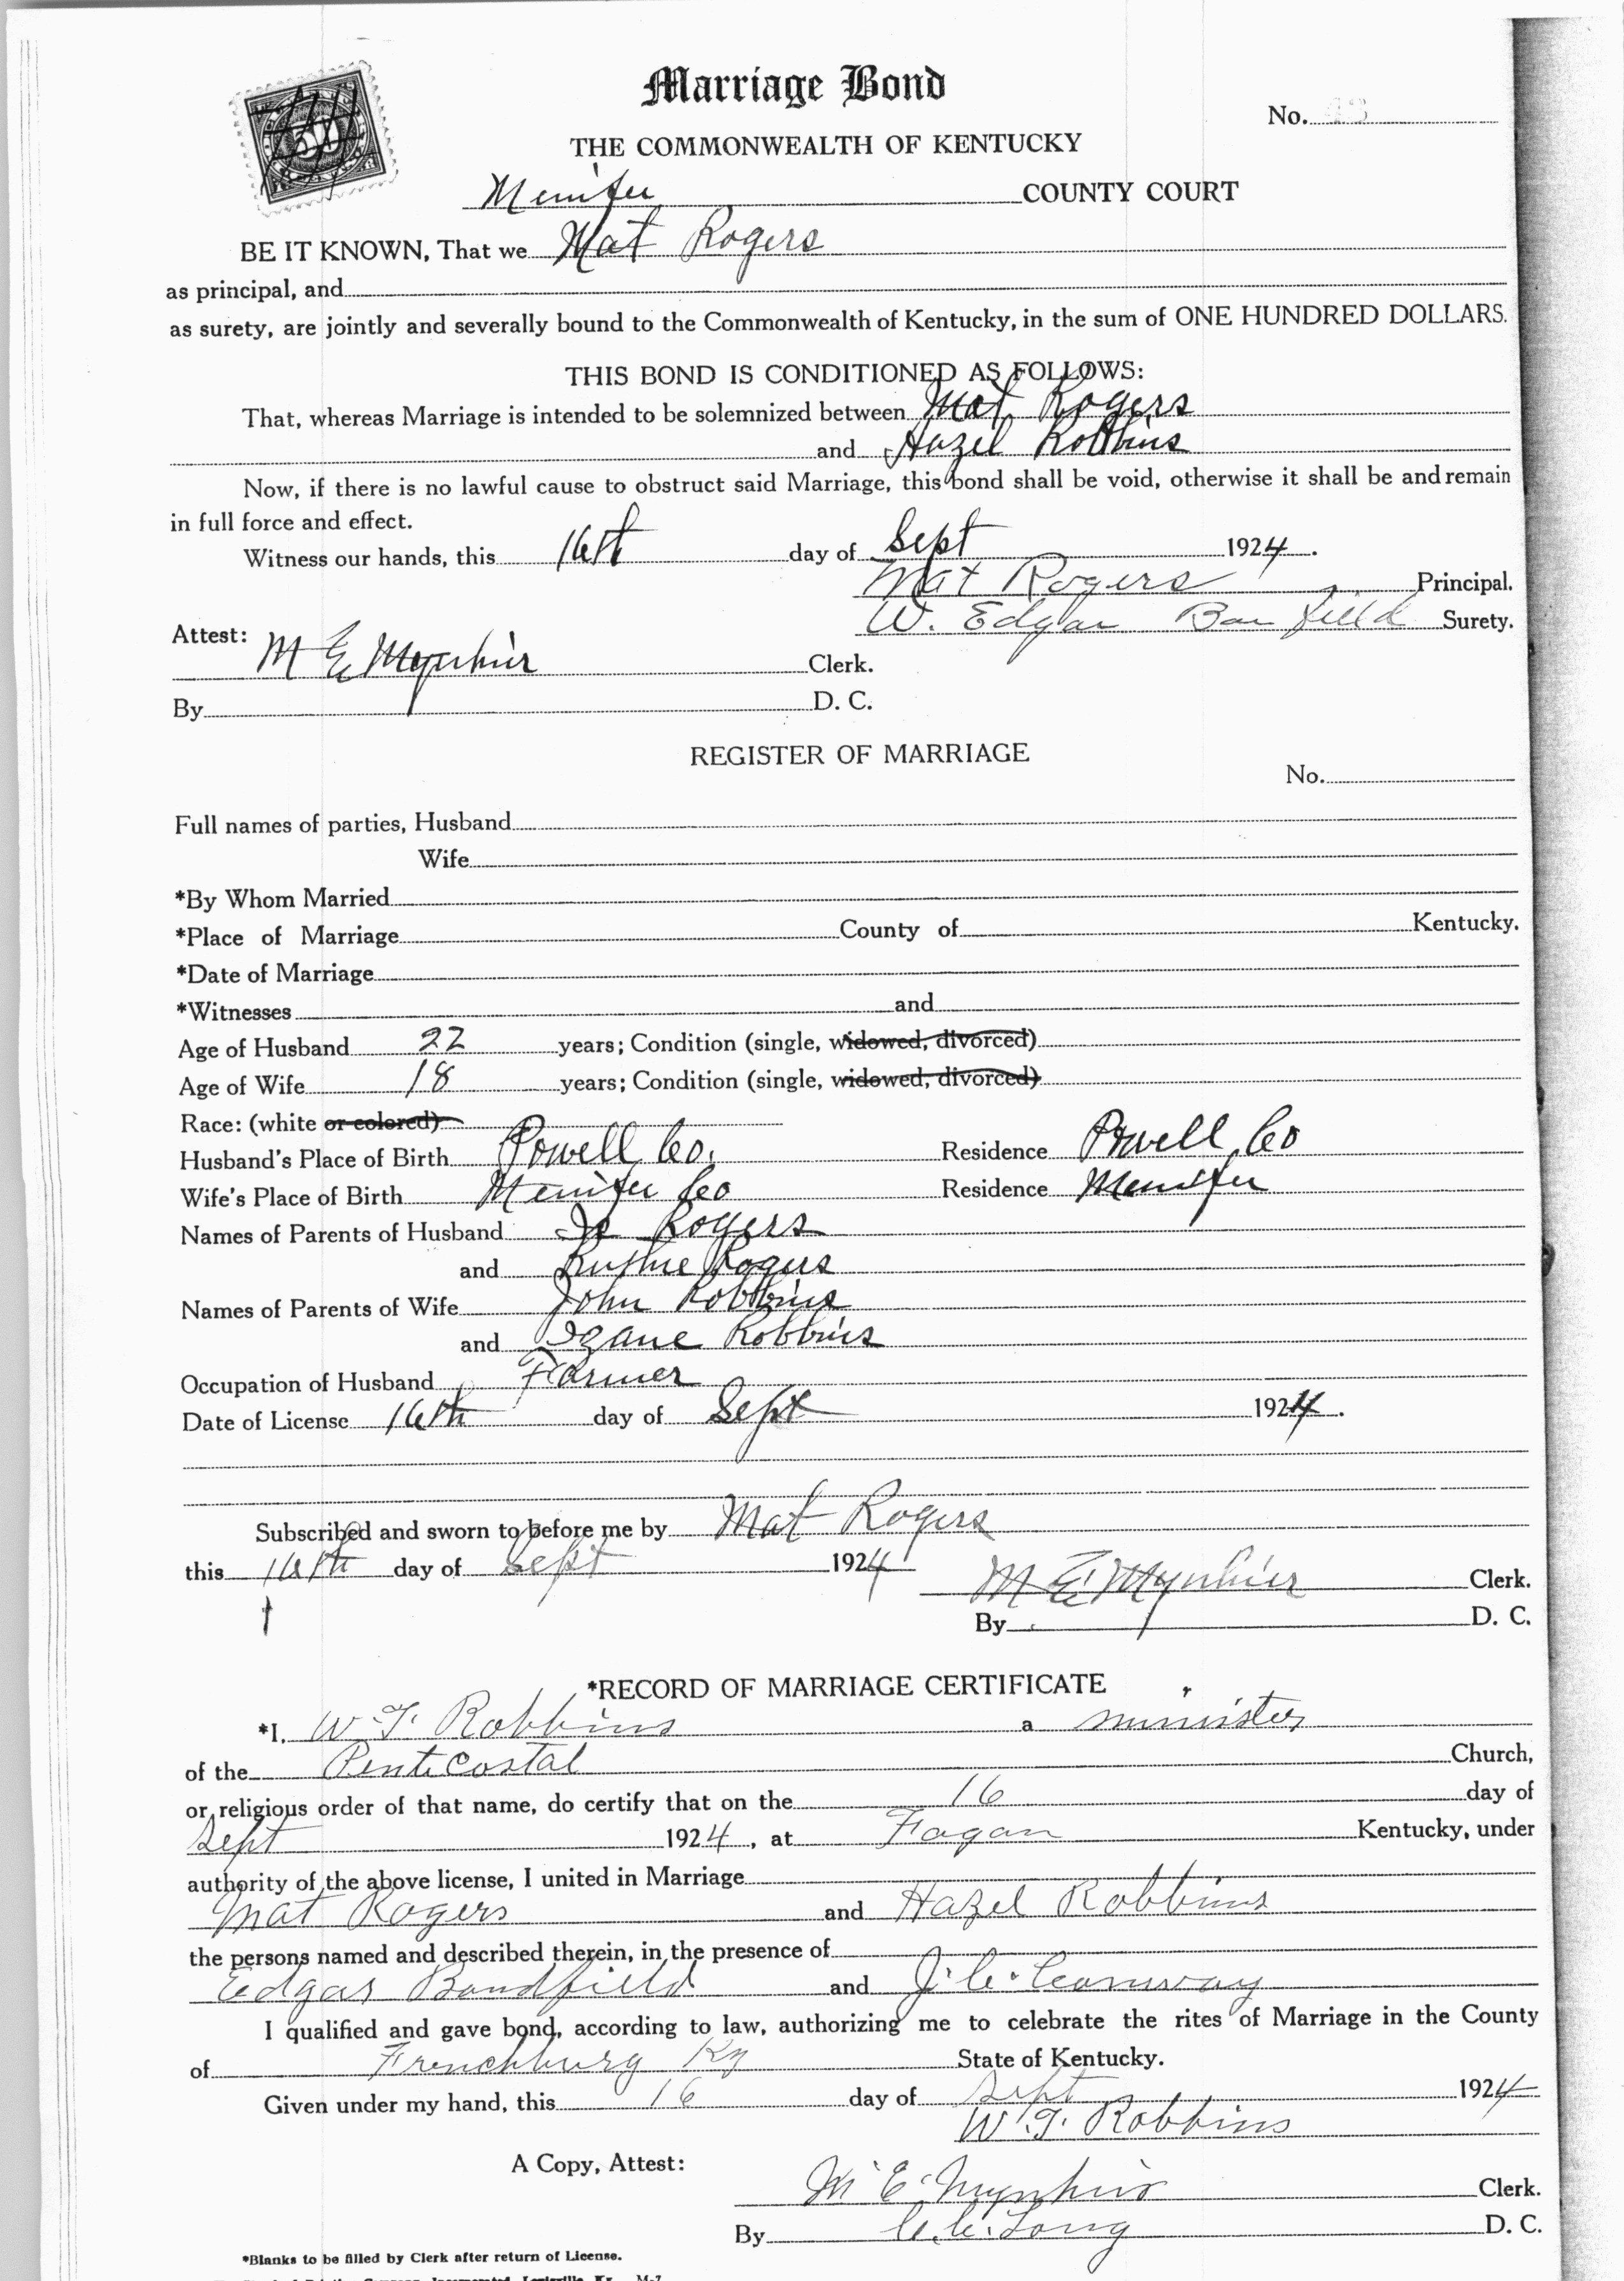 Marriage Bond
No.
THE COMMONWEALTH OF KENTUCKY
Menifee COUNTY COURT
BE IT KNOWN, That we Mat Rogers
as principal, and
as surety, are jointly and severally bound to the Commonwealth of Kentucky, in the sum of ONE HUNDRED DOLLARS.
THIS BOND IS CONDITIONED AS FOLLOWS:
That, whereas Marriage is intended to be solemnized between Mat Rogers
and Hazel Robbins
Now, if there is no lawful cause to obstruct said Marriage, this bond shall be void, otherwise it shall be and remain
in full force and effect.
Witness our hands, this 16th day of Sept 1924.
Mat Rogers Principal.
W. Edgar Banfield Surety.
Attest:
M E Mynhier Clerk.
By D. C.
REGISTER OF MARRIAGE
No.
Full names of parties, Husband
Wife
*By Whom Married
*Place of Marriage County of Kentucky.
*Date of Marriage
*Witnesses and
Age of Husband 22 years; Condition (single, widowed, divorced)
Age of Wife 18 years; Condition (single, widowed, divorced)
Race: (white or colored)
Husband's Place of Birth Powell Co. Residence Powell Co
Wife's Place of Birth Menifee Co Residence Menifee
Names of Parents of Husband Rogers
and Rogers
Names of Parents of Wife John Robbins
and Robbins
Occupation of Husband Farmer
Date of License 16th day of Sept 1924.
Subscribed and sworn to before me by Mat Rogers
this 16th day of Sept 1924 M E Mynhier Clerk.
By D. C.
*RECORD OF MARRIAGE CERTIFICATE
*I, Robbins a minister
of the Pentecostal Church,
or religious order of that name, do certify that on the 16 day of
Sept 1924, at Fagan Kentucky, under
authority of the above license, I united in Marriage
Mat Rogers and Hazel Robbins
the persons named and described therein, in the presence of
Edgar Bandfield and J. C. Conway
I qualified and gave bond, according to law, authorizing me to celebrate the rites of Marriage in the County
of Frenchburg Ky State of Kentucky.
Given under my hand, this 16 day of Sept 1924
Robbins
A Copy, Attest:
M E Mynhier Clerk.
By Long D. C.
*Blanks to be filled by Clerk after return of License.